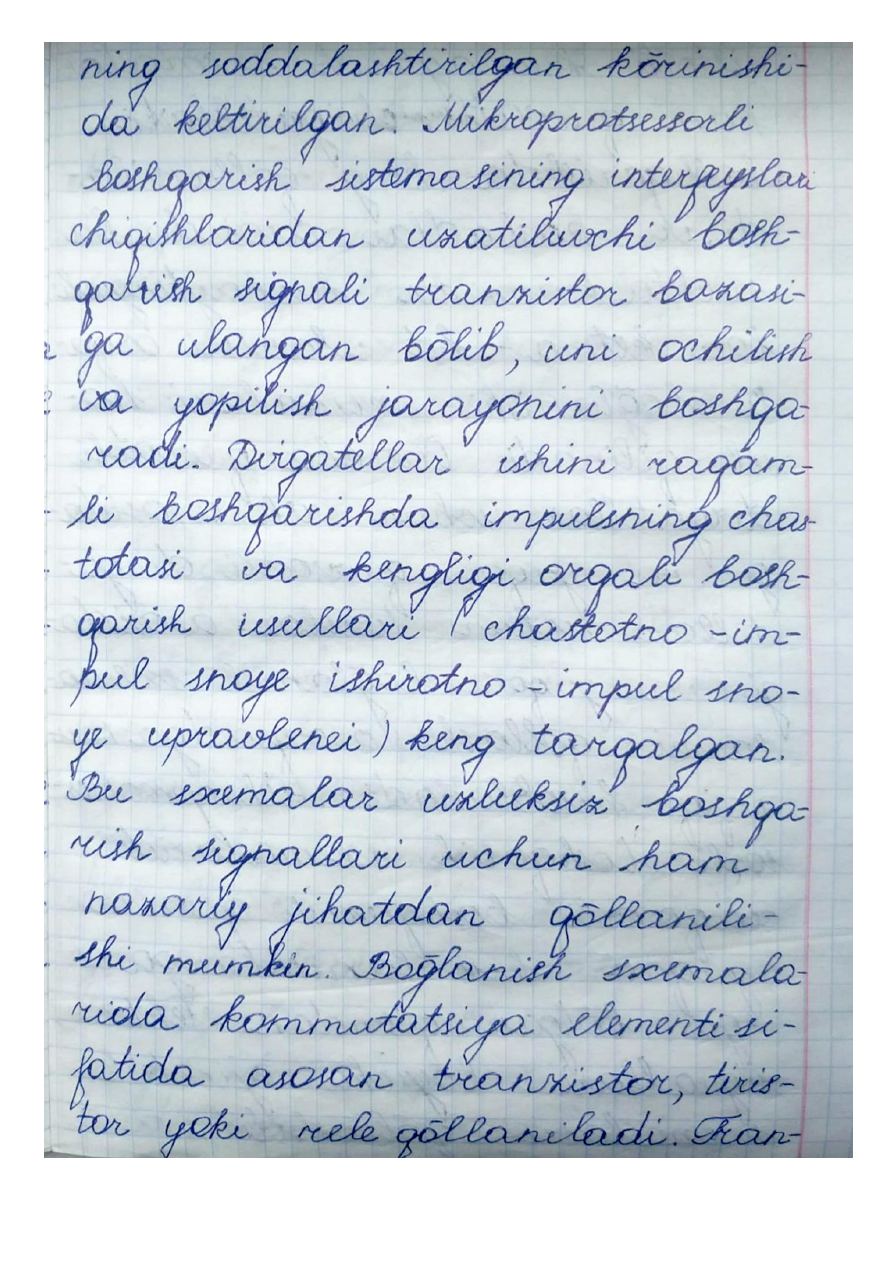 ning soddalashtirilgan kōrinishi-
da keltirilgan. Mikroprotsessorli
boshqarish sistemasining interfeyslari
chiqishlaridan uzatiluvchi bosh-
qarish signali tranzistor bazasi-
ga ulangan bōlib, uni ochilish
va yopilish jarayonini boshqa-
radi. Dvigatellar ishini raqam-
li boshqarishda impulsning chas-
totasi va kengligi orqali bosh-
qarish usullari ( chastotno - im-
pul snoye ishirotno - impul sno-
ye upravlenei ) keng tarqalgan.
Bu sxemalar uzluksiz boshqa-
rish signallari uchun ham
nazariy jihatdan qōllanili-
shi mumkin. Boḡlanish sxemala-
rida kommutatsiya elementi si-
fatida asosan tranzistor, tiris-
tor yoki rele qōllaniladi. Tran-